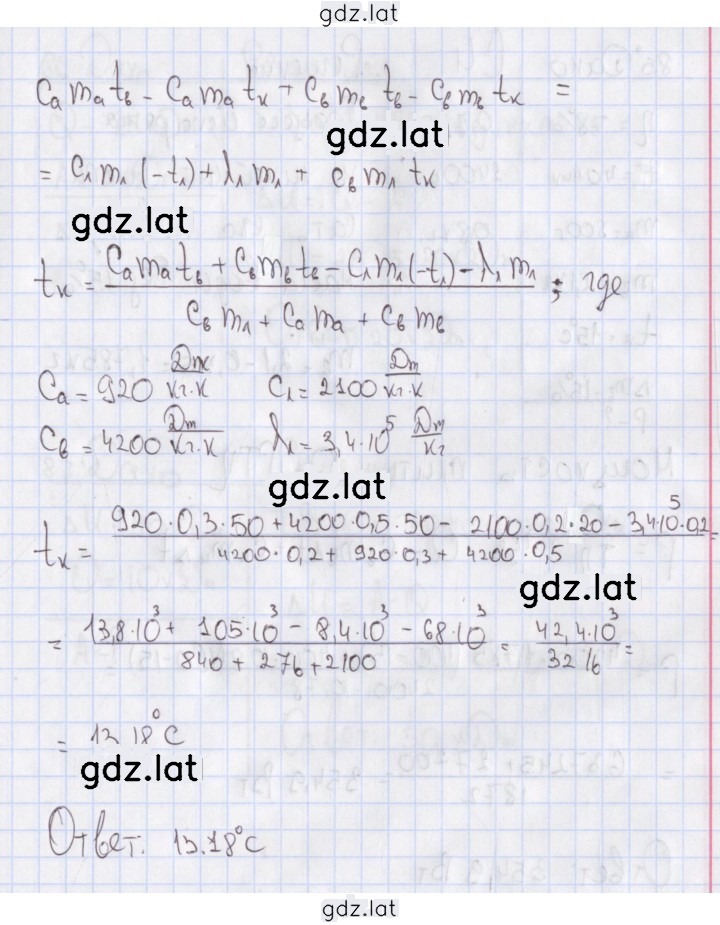 gdz.lat
Cₐmₐtв - Cₐmₐtк + Cвmвtв - Cвmвtк =
gdz.lat
= C₁m₁(-t₁) + λ₁m₁ + Cвm₁tк
gdz.lat
tк = (Cₐmₐtв + Cвmвtв - C₁m₁(-t₁) - λ₁m₁) / (Cвm₁ + Cₐmₐ + Cвmв) ; где
Cₐ = 920 Дж/кг·К C₁ = 2100 Дж/кг·К
Cв = 4200 Дж/кг·К λ₁ = 3,4·10⁵ Дж/кг
gdz.lat
tк = (920·0,3·50 + 4200·0,5·50 - 2100·0,2·20 - 3,4·10⁵·0,2) / (4200·0,2 + 920·0,3 + 4200·0,5) =
gdz.lat
= (13,8·10³ + 105·10³ - 8,4·10³ - 68·10³) / (840 + 276 + 2100) = 42,4·10³ / 3216 =
= 13,18°C
gdz.lat
Ответ: 13.18°C
gdz.lat